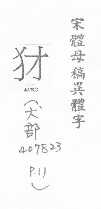 宋體母稿異體字
犲
(犬部
407823
P.11)